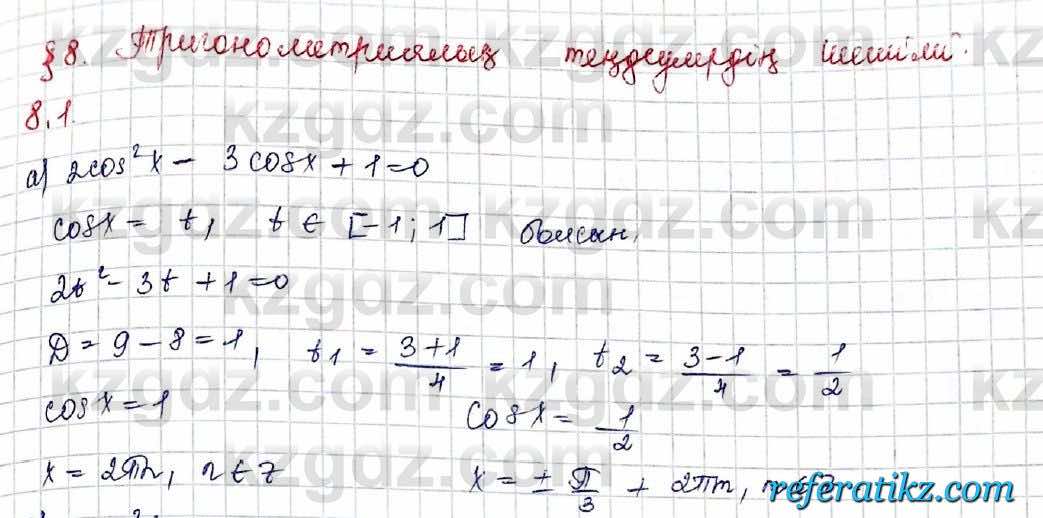 §8. Тригонометриялық теңдеулердің шешімі.
8.1.
а) 2cos²x - 3cosx + 1=0
cosx = t, t ∈ [-1; 1] болсын,
2t² - 3t + 1=0
D = 9 - 8 = 1, t₁ = (3+1)/4 = 1, t₂ = (3-1)/4 = 1/2
cosx = 1 cosx = 1/2
x = 2πn, n ∈ Z x = ± π/3 + 2πn,
kzgdz.com
referatikz.com